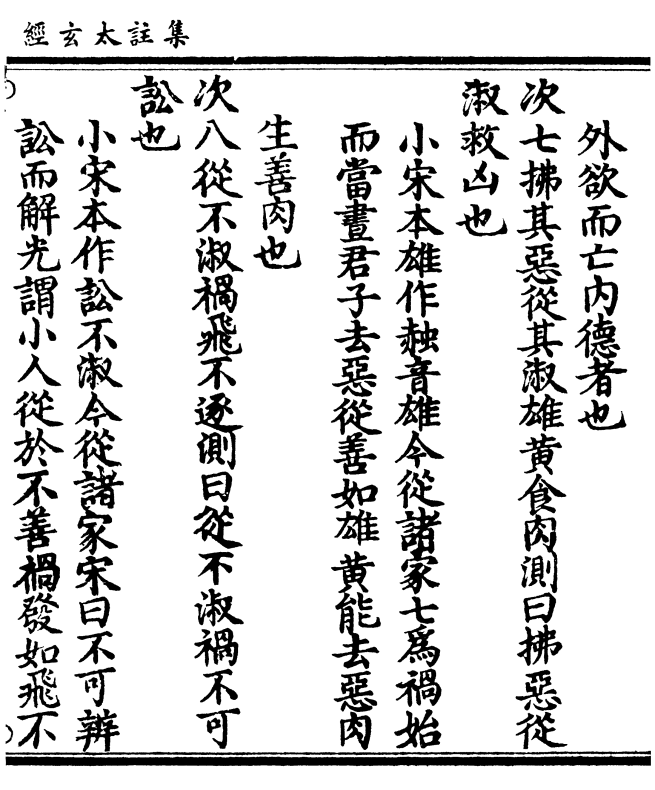 集註太玄經
外欲而亡内德者也
次七拂其惡從其淑雄黄食肉測曰拂惡從
淑救凶也
小宋本雄作䧺音雄今從諸家七爲禍始
而當晝君子去惡從善如雄黄能去惡肉
生善肉也
次八從不淑禍飛不逐測曰從不淑禍不可
訟也
小宋本作訟不淑今從諸家宋曰不可辨
訟而解光謂小人從於不善禍發如飛不